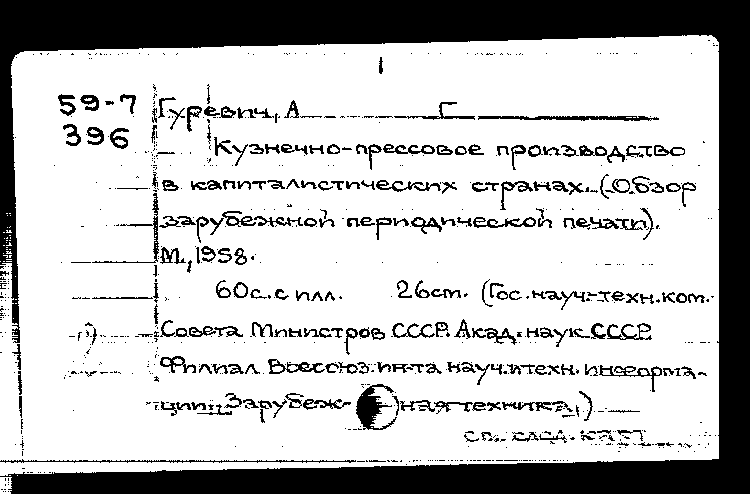 59-7 Гуревич, А Г
396
Кузнечно-прессовое производство
в капиталистических странах. (Обзор
зарубежной периодической печати).
М., 1958.
60с. с илл. 26см. (Гос. науч-техн. ком.
Совета Министров СССР. Акад. наук СССР.
Филиал Всесоюз. ин-та науч. и техн. информа-
ции. Зарубеж- ная техника,)
см. след. карт